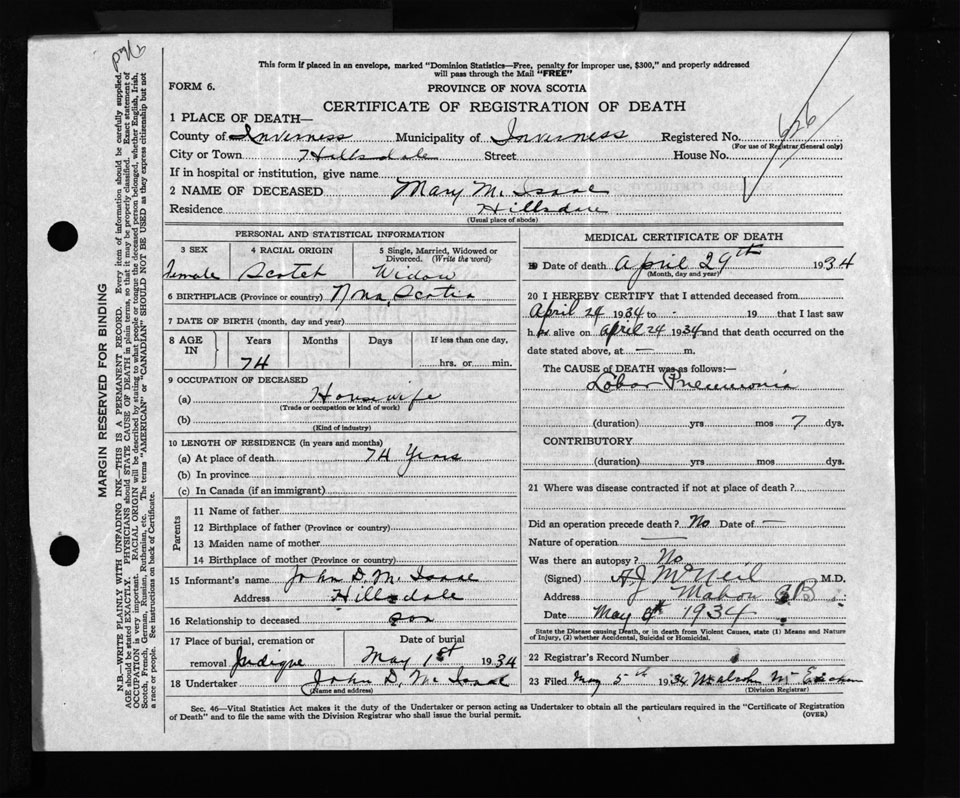 This form if placed in an envelope, marked "Dominion Statistics—Free, penalty for improper use, $300," and properly addressed
will pass through the Mail "FREE"
FORM 6.
PROVINCE OF NOVA SCOTIA
CERTIFICATE OF REGISTRATION OF DEATH
626
1 PLACE OF DEATH—
County of Inverness Municipality of Inverness Registered No.
(For use of Registrar General only)
City or Town Hillsdale Street House No.
If in hospital or institution, give name
2 NAME OF DECEASED Mary Mc Isaac
Residence Hillsdale
(Usual place of abode)
PERSONAL AND STATISTICAL INFORMATION
3 SEX 4 RACIAL ORIGIN 5 Single, Married, Widowed or
Divorced. (Write the word)
female Scotch Widow
6 BIRTHPLACE (Province or country) Nova Scotia
7 DATE OF BIRTH (month, day and year)
8 AGE IN Years Months Days If less than one day,
74 hrs. or min.
9 OCCUPATION OF DECEASED
(a) Housewife
(Trade or occupation or kind of work)
(b)
(Kind of industry)
10 LENGTH OF RESIDENCE (in years and months)
(a) At place of death 74 Years
(b) In province
(c) In Canada (if an immigrant)
Parents
11 Name of father
12 Birthplace of father (Province or country)
13 Maiden name of mother
14 Birthplace of mother (Province or country)
15 Informant's name John D. Mc Isaac
Address Hillsdale
16 Relationship to deceased son
17 Place of burial, cremation or Date of burial
removal Judique May 1st 1934
18 Undertaker John D. Mc Isaac
(Name and address)
MEDICAL CERTIFICATE OF DEATH
19 Date of death April 29th 1934
(Month, day and year)
20 I HEREBY CERTIFY that I attended deceased from
April 24 1934 to - 19 that I last saw
her alive on April 24 1934 and that death occurred on the
date stated above, at — m.
The CAUSE OF DEATH was as follows:—
Lobar Pneumonia
(duration) yrs mos 7 dys.
CONTRIBUTORY
(duration) yrs mos dys.
21 Where was disease contracted if not at place of death?
Did an operation precede death? No Date of —
Nature of operation —
Was there an autopsy? No
(Signed) AJ McNeil M.D.
Address Mabou CB
Date May 8th 1934
State the Disease causing Death, or in death from Violent Causes, state (1) Means and Nature
of Injury, (2) whether Accidental, Suicidal or Homicidal.
22 Registrar's Record Number
23 Filed May 5th 1934 Malcolm McEachern
(Division Registrar)
Sec. 46—Vital Statistics Act makes it the duty of the Undertaker or person acting as Undertaker to obtain all the particulars required in the "Certificate of Registration
of Death" and to file the same with the Division Registrar who shall issue the burial permit. (OVER)
MARGIN RESERVED FOR BINDING
N.B.—WRITE PLAINLY WITH UNFADING INK—THIS IS A PERMANENT RECORD. Every item of information should be carefully supplied.
AGE should be stated EXACTLY. PHYSICIANS should STATE CAUSE OF DEATH in plain terms, so that it may be properly classified. Exact statement of
OCCUPATION is very important. RACIAL ORIGIN will be described by stating to what people or tongue the deceased person belonged, whether English, Irish,
Scotch, French, German, Russian, Ruthenian, etc. The terms "AMERICAN" or "CANADIAN" SHOULD NOT BE USED as they express citizenship but not
a race or people. See instructions on back of Certificate.